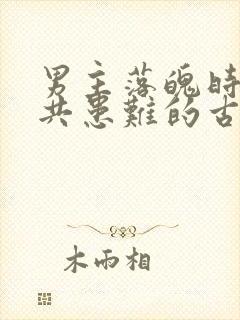 男主落魄时
共患难的古
木雨相